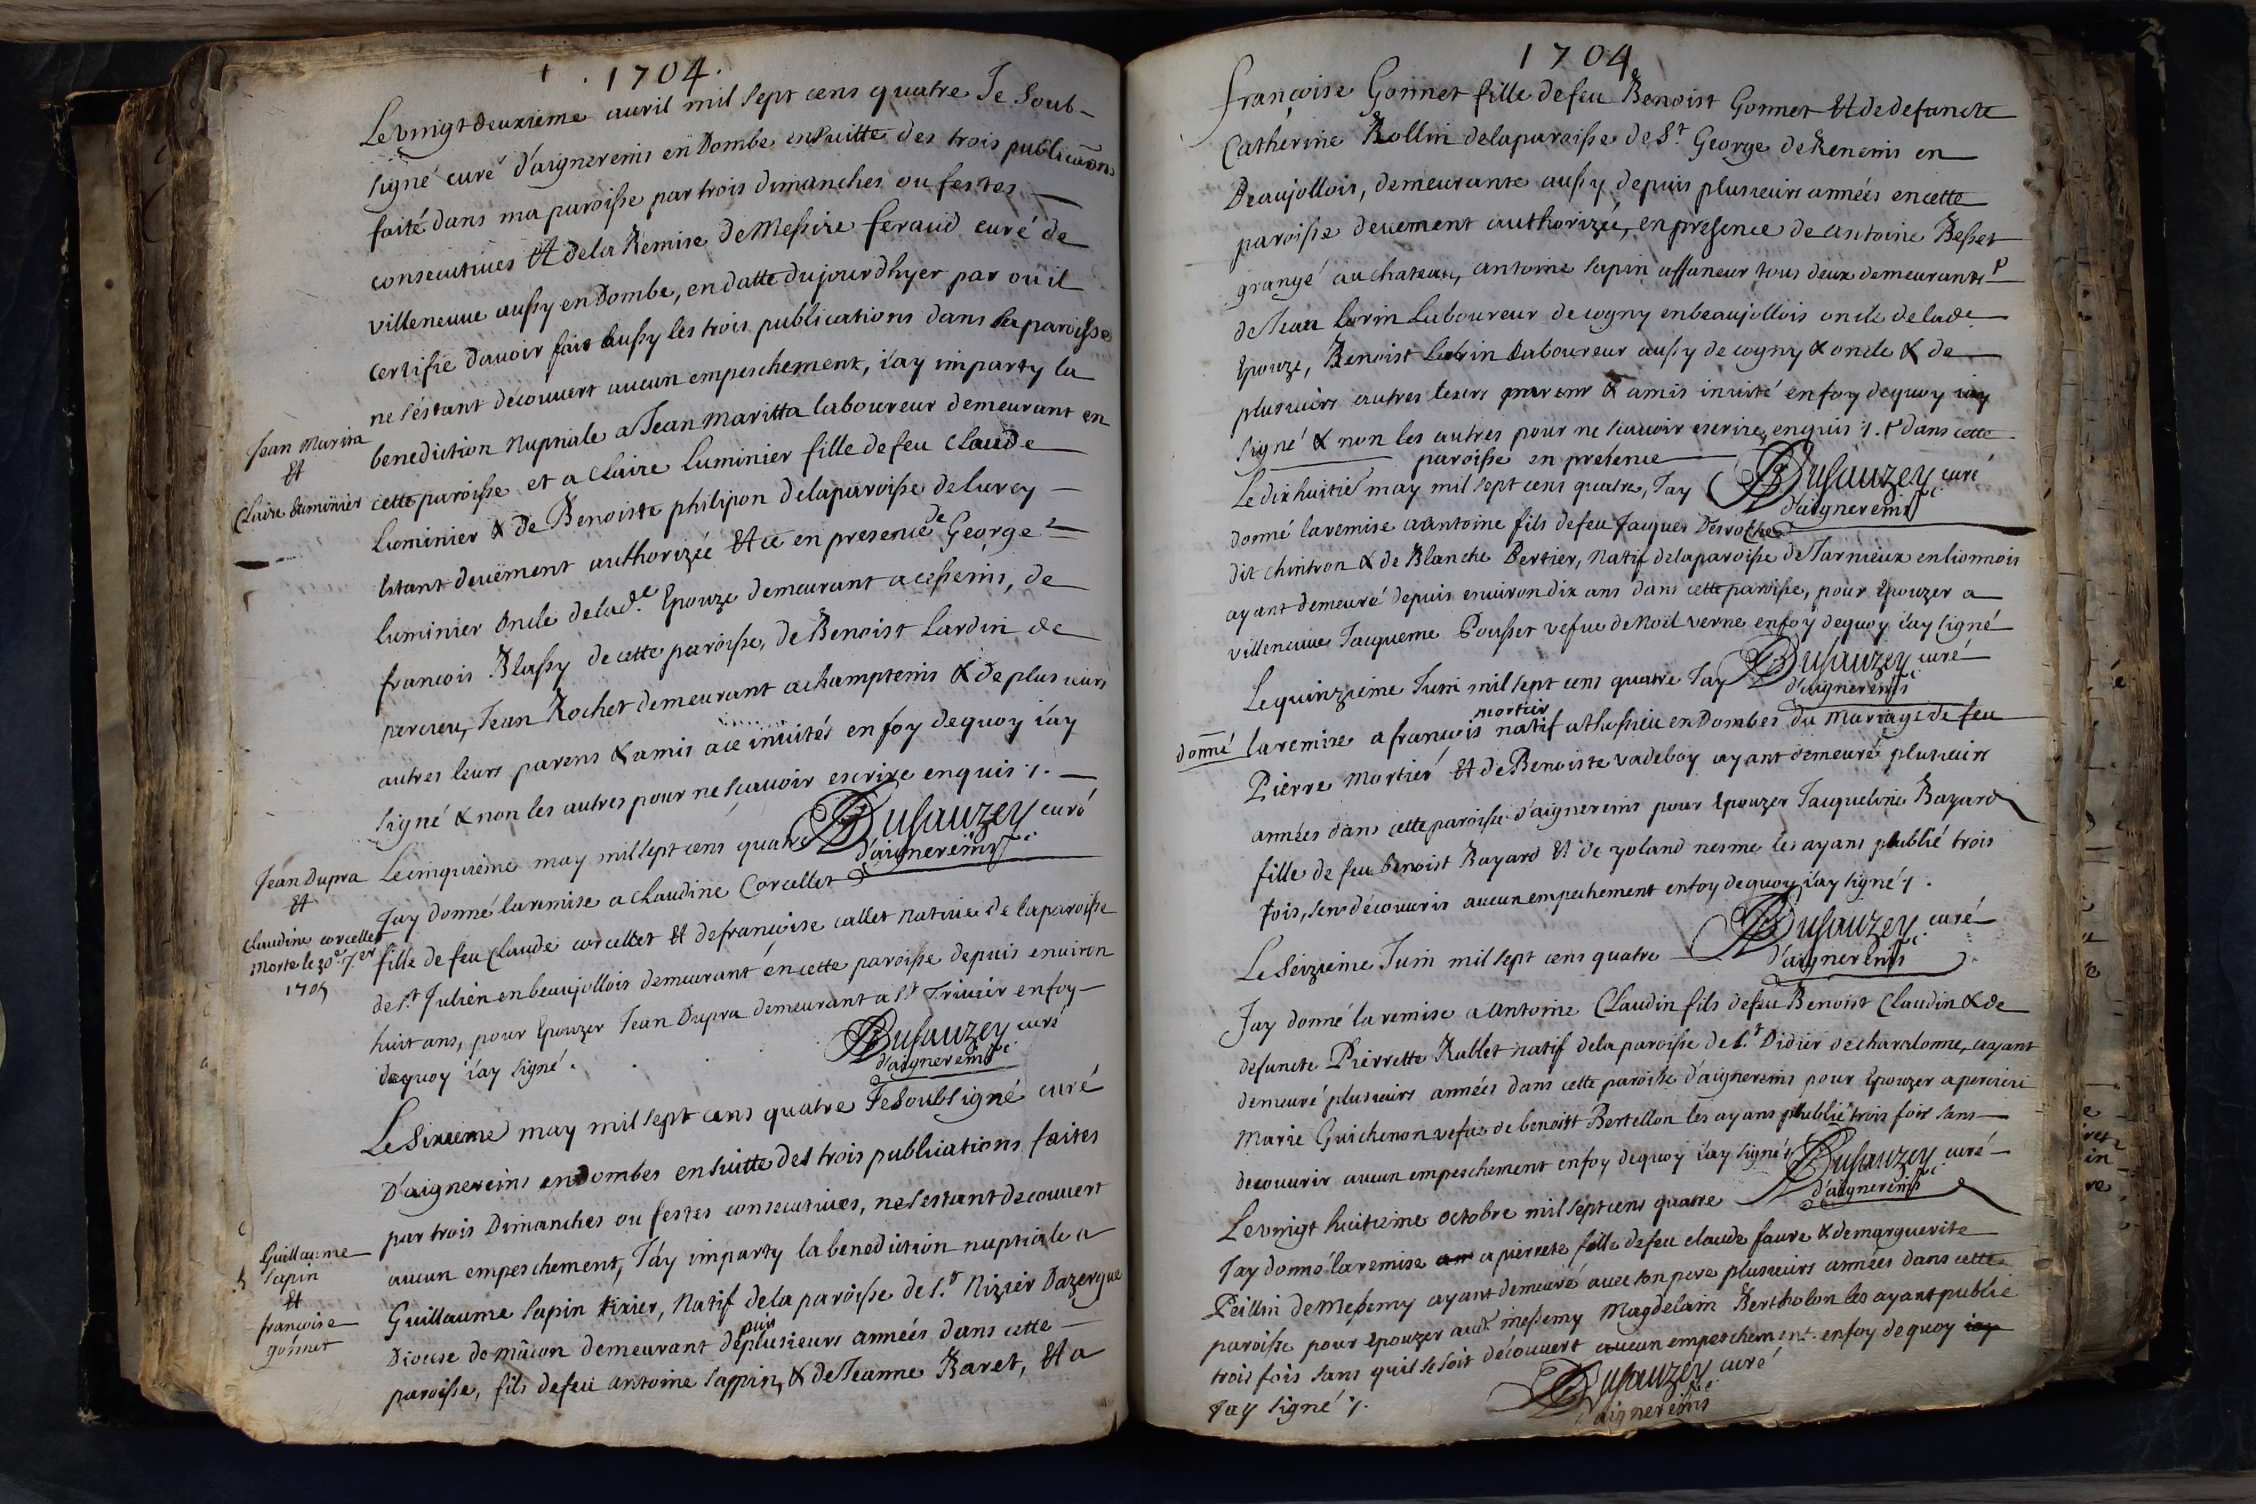 1704.
Le vingt deuxieme auril mil sept cens quatre Je Soub-
signé curé d'aignereins en Dombe ensuitte des trois publicaõns
faité dans ma paroisse par trois dimanches ou festes
consecutiues Et de la Remise de Messire feraud curé de
villeneuue aussy en Dombe, en datte du jour dhyer par ou il
certifie dauoir fait aussy les trois publications dans sa paroisse
ne s'éstant decouuert aucun empeschement, i'ay imparty la
benediction Nuptiale a Jean Maritta laboureur demeurant en
Jean Marita
Et
Claire Luminier
cette paroisse et a Claire Luminier fille de feu Claude
Luminier & de Benoiste philipon de la paroisse de lurcy
Estant deuëment authorizée Et ce en presence de George
Luminier Oncle de lad.e Epouze demeurant a cesseins, de
francois Blassy de cette paroisse, de Benoist Lardin de
percieu, Jean Rochet demeurant a champteins & de plusieurs
autres leurs parens & amis a ce inuités en foy dequoy i'ay
signé & non les autres pour ne scauoir escrire enquis /. 
Dusauzey curé
d'aignereins
Jean Dupra
Et
Claudine corcellet
Morte le 30e. 7.er
1705
Le cinquieme may mil sept cens quatre
Jay donné la remise a Claudine Corcellet
fille de feu Claude corcellet Et de francoise callet natiue de la paroisse
de s.t Julien en beaujollois demeurant en cette paroisse depuis enuiron
huit ans, pour Epouzer Jean Dupra demeurant a s.t Triuier en foy
dequoy i'ay signé.
Dusauzey curé
d'aignereins
Le Sixieme may mil sept cens quatre Je Soubsigné curé
D'aignereins en dombes en suitte des trois publications faites
par trois Dimanches ou festes consecutiues, ne s'estant decouuert
aucun empeschement, J'ay imparty la benediction nuptiale a
Guillaume
sapin
Et
francoise
gonnet
Guillaume sapin tixier, Natif de la paroisse de s.t Nizier Dazergue
Diocese de mâcon demeurant depuis plusieurs années dans cette
paroisse, fils de feu antoine sappin, & de Jeanne Baret, Et a
1704
françoise Gonnet fille de feu Benoist Gonnet Et de defuncte
Catherine Rollin de la paroisse de S.t George de Reneins en
Beaujollois, demeurante aussy depuis plusieurs années en cette
paroisse deuement authorizée, en presence de antoine Besset
grangé au chateau, antoine sapin affaneur tous deux demeurants
de Jean Lorin Laboureur de cogny en beaujollois oncle de lad.e
Epouze, Benoist Lorin Laboureur aussy de cogny & oncle & de
plusieurs autres leurs parens & amis inuité en foy dequoy iay
signé & non les autres pour ne scauoir escrire, enquis /. dans cette
paroisse en presence
Dusauzey curé
d'aignereins
Le dix huitie may mil sept cens quatre, Jay
donné la remise a antoine fils de feu Jacques Desroche
dit chintron & de Blanche Bertier, Natif de la paroisse de Tarnieux en lionnois
ayant demeuré depuis enuiron dix ans dans cette paroisse, pour Epouzer a
villeneuue Jacqueme Pousset vefue de Noil verne en foy dequoy i'ay signé
Dusauzey curé
d'aignereins
Le quinzieme Juin mil sept cens quatre Jay
donné la remise a francois mortier natif a thossieu en Dombes du Mariage de feu
Pierre Mortier Et de Benoiste vadeboy ayant demeuré plusieurs
années dans cette paroisse d'aignereins pour Epouzer Jacqueline Bayard
fille de feu benoist Bayard Et de yoland nesme les ayans publié trois
fois, sens découurir aucun empechement en foy dequoy i'ay signé /.
Dusauzey curé
d'aignereins
Le Seizieme Juin mil sept cens quatre
Jay donné la remise a Antoine Claudin fils de feu Benoist Claudin & de
defuncte Pierrette Rublet natif de la paroisse de s.t Didier de charalonne, ayant
demeuré plusieurs années dans cette paroisse d'aignereins pour Epouzer a percieu
Marie Guichenon vefue de benoist Bertellon les ayans publié trois fois sans
decouurir aucun empeschement en foy dequoy i'ay signé
Dusauzey curé
d'aignereins
Le vingt huitieme octobre mil sept cens quatre
Jay donné la remise a pierrete fille de feu claude faure & de marguerite
Peillin de Messemy ayant demeuré auec son pere plusieurs années dans cette
paroisse pour epouzer aud. messemy Magdelain Bertholon les ayant publié
trois fois sans quil se soit découuert aucun empeschement. en foy de quoy iay
Jay signé /.
Dusauzey curé
d'aignereins